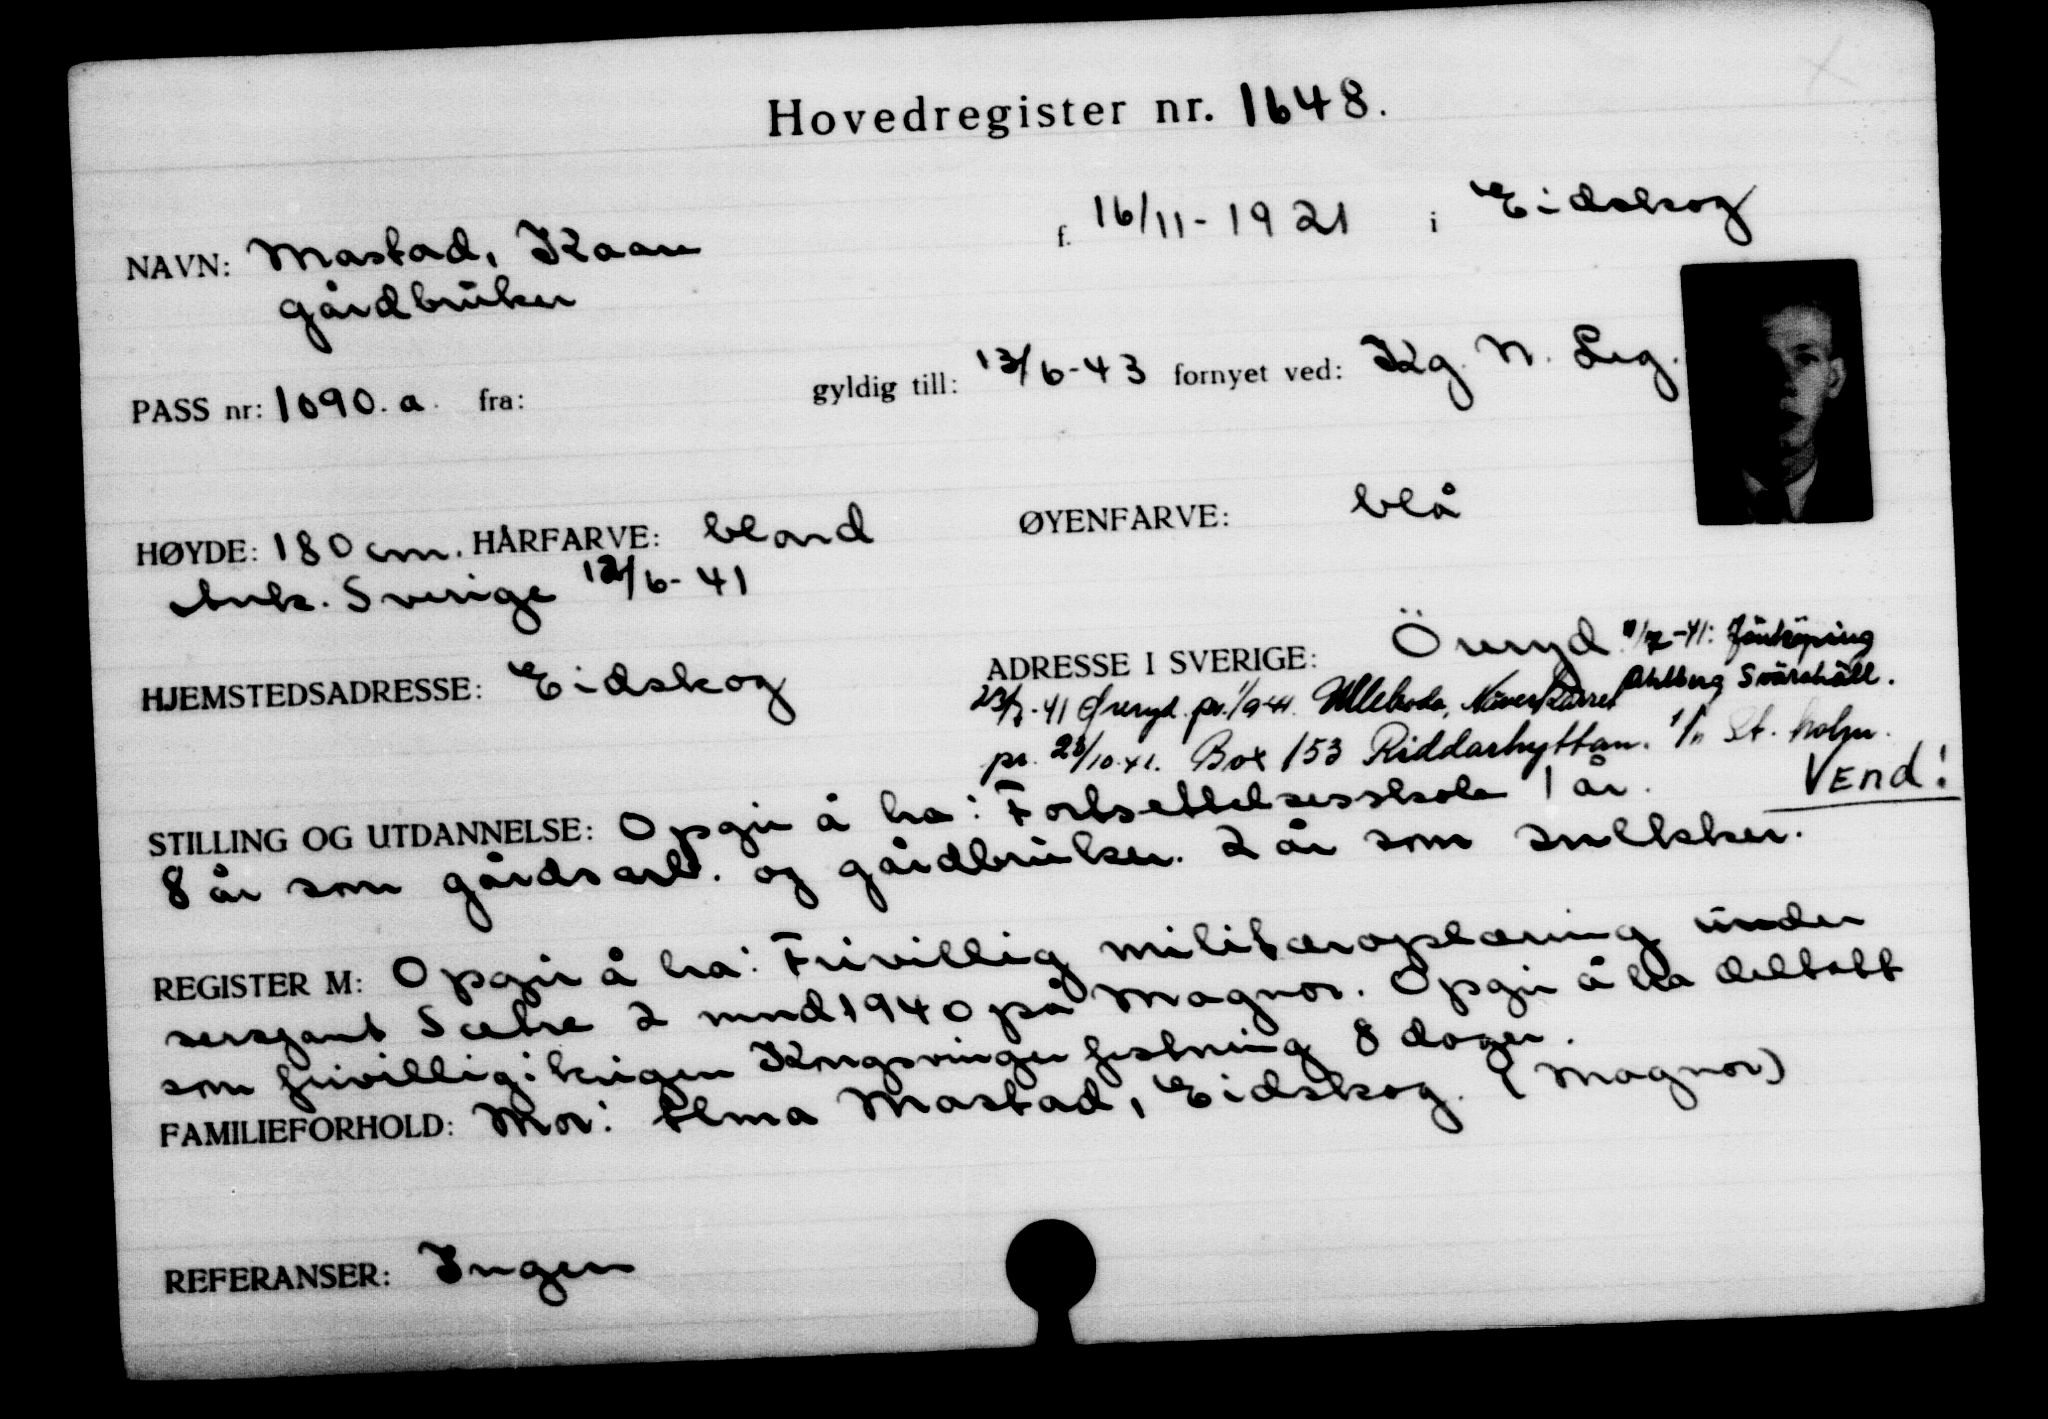 Hovedregister nr. 1648.
NAVN: Mastad, Kaare f. 16/11-1921 i Eidskog
gårdbruker
PASS nr: 1090.a. fra: gyldig till: 13/6-43 fornyet ved: Kg. N. Leg.
HØYDE: 180 cm. HÅRFARVE: blond ØYENFARVE: blå
Ank. Sverige 12/6-41
HJEMSTEDSADRESSE: Eidskog ADRESSE I SVERIGE: Öreryd. 11/7-41: Jönköping
Ahlberg
23/7-41 Øreryd. pr. 1/9-41.
pr. 28/10-41. Box 153 Riddarhyttan. St. holm.
Vend!
STILLING OG UTDANNELSE: Opgir å ha: Fortsettelsesskole 1 år.
8 år som gårdsarb. og gårdbruker. 2 år som snekker.
REGISTER M: Opgir å ha: Frivillig militæroplæring under
sersjant Sætre 2 mnd 1940 på Magnor. Opgir å ha deltatt
som frivillig i krigen Kongsvinger festning 8 dager.
FAMILIEFORHOLD: Mor: Alma Mastad, Eidskog. (Magnor)
REFERANSER: Ingen